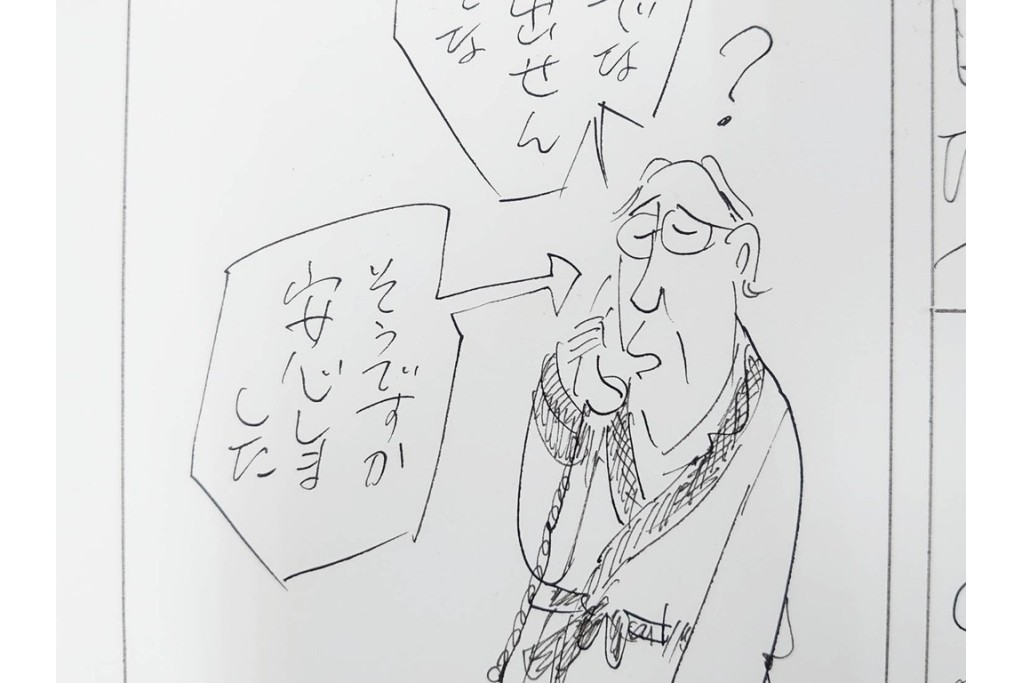 でな
出せん
な
？
そうですか
安心しま
した